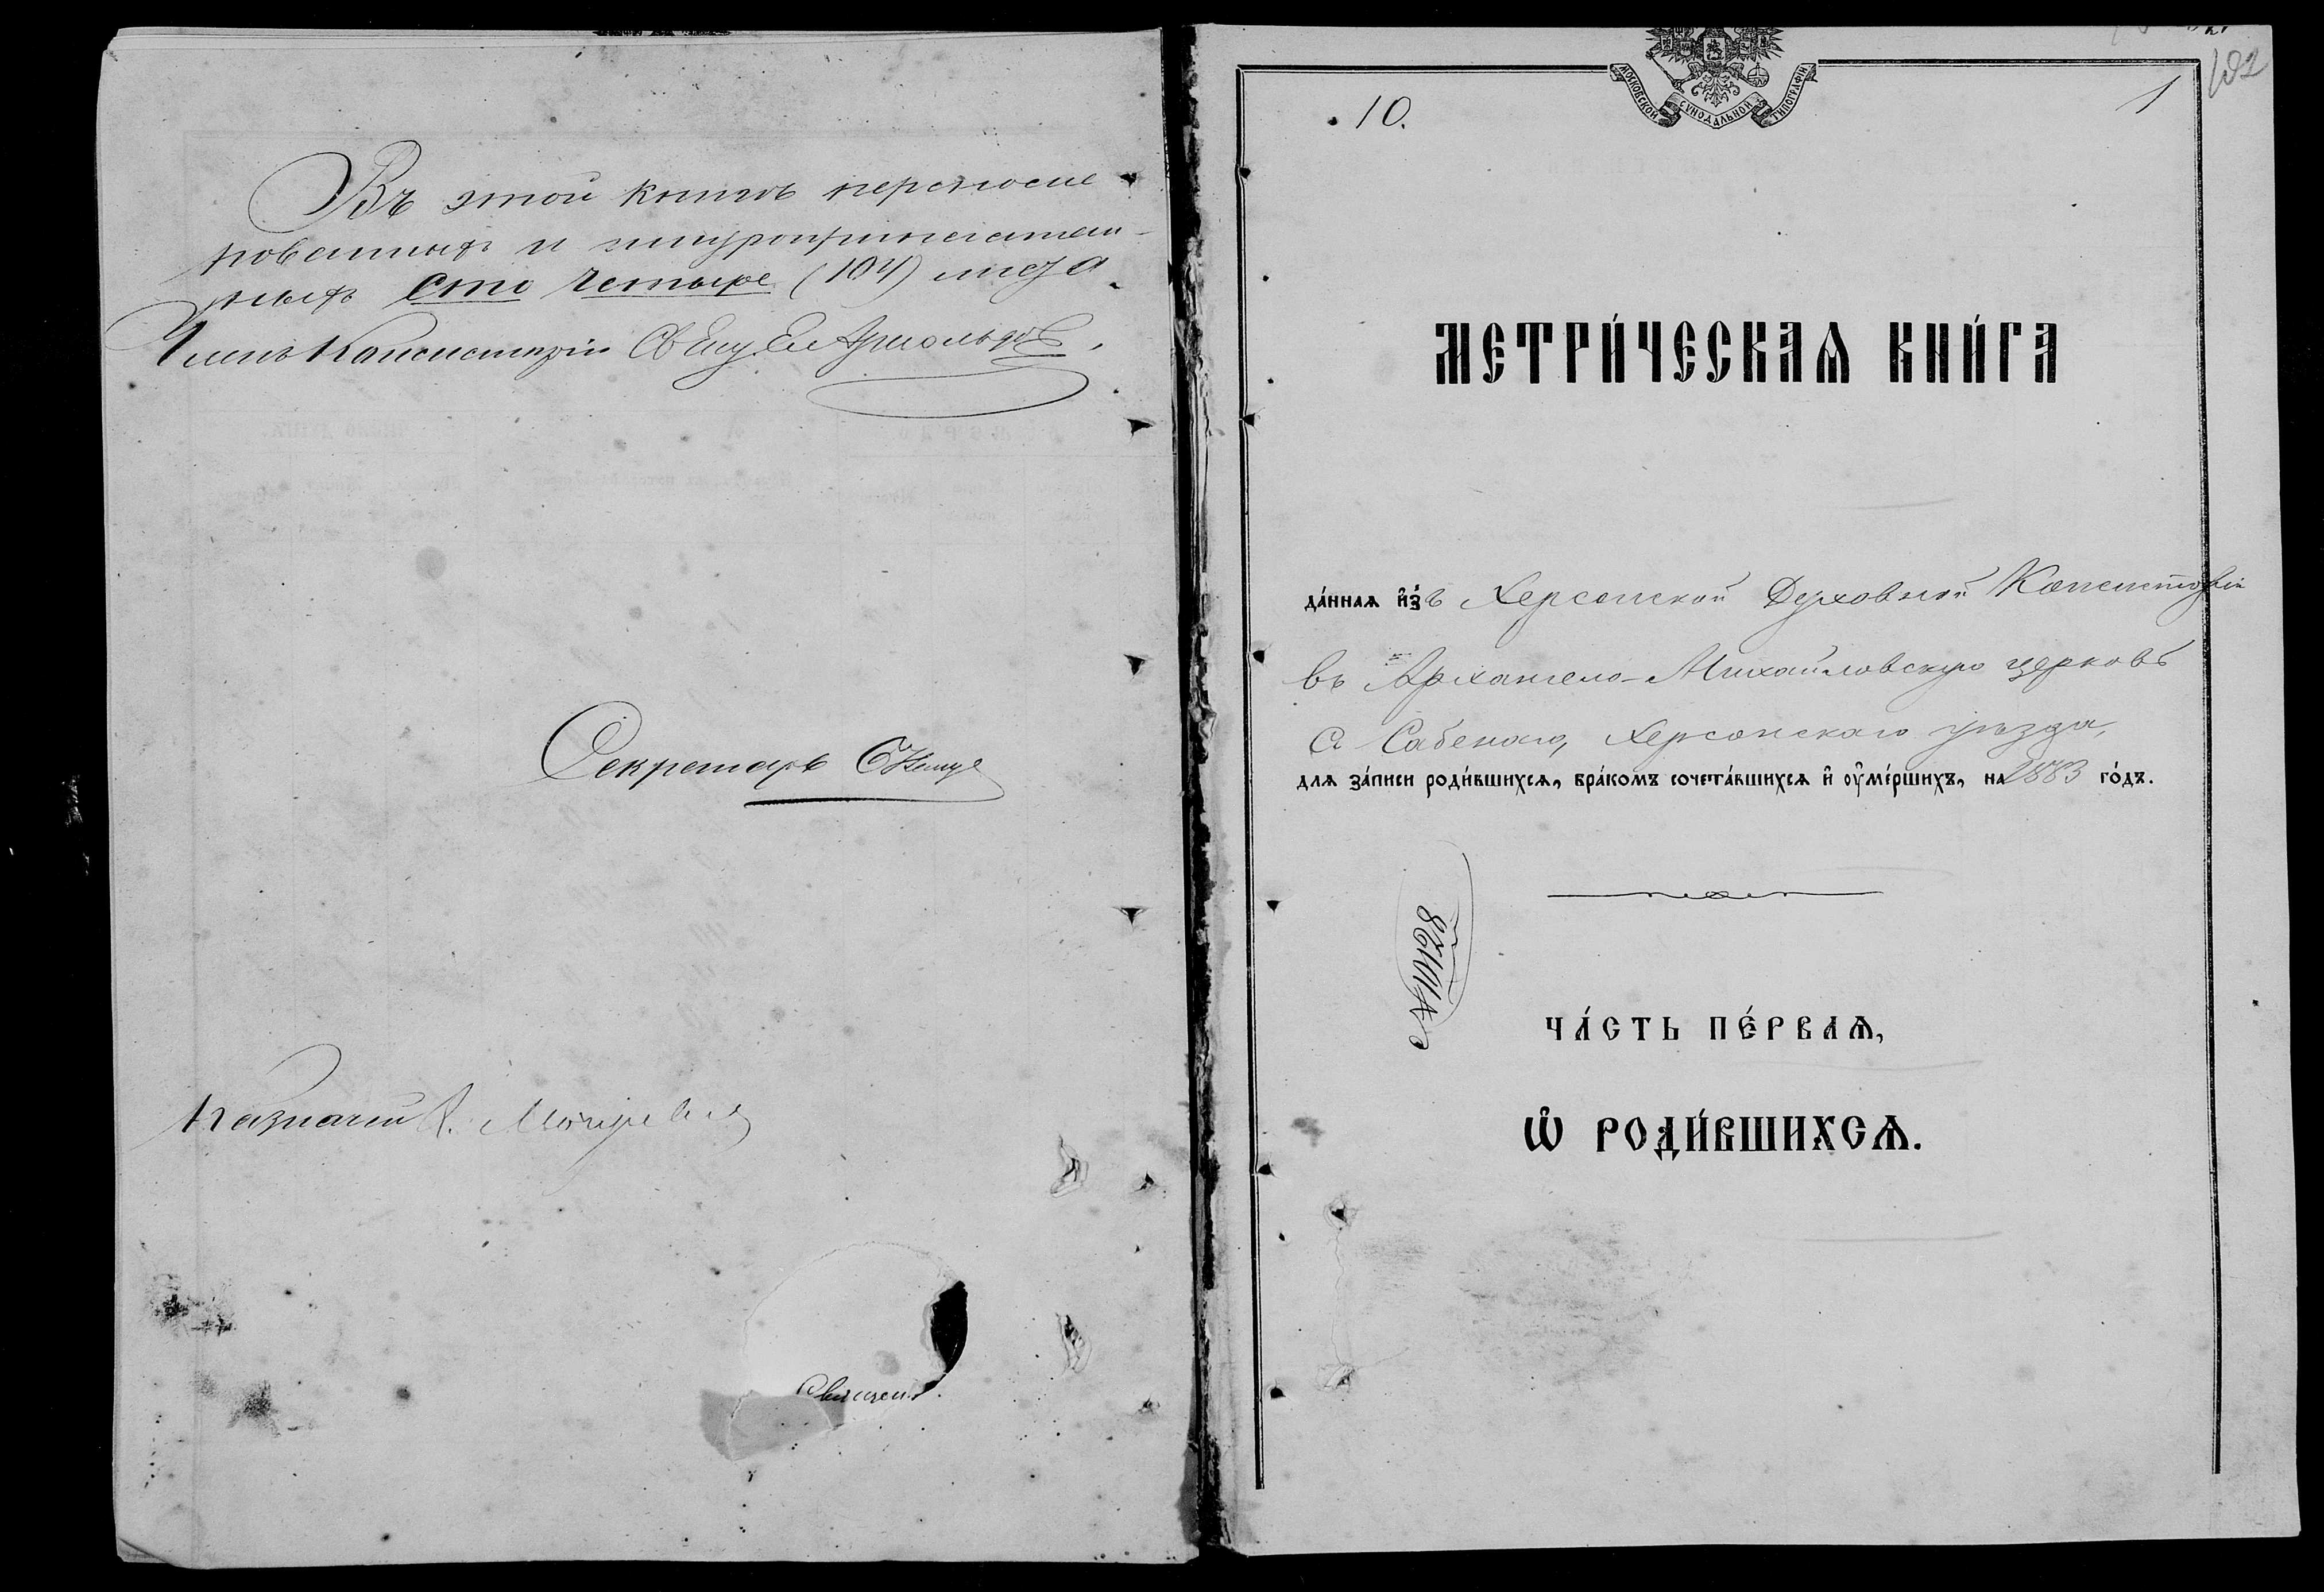 Въ этой книгѣ перномеро-
ванныхъ и шнуроприпечатан-
ныхъ сто четыре (104) листа.
Членъ Консисторіи
Секретарь
Казначей
Священ.
102
1
10.
МОСКОВСКОЙ СѴНОДАЛЬНОЙ ТИПОГРАФІИ
МЕТРИ́ЧЕСКАѦ КНИ́ГА
да́ннаѧ и҆́зъ Херсонской Духовной Консисторіи
въ Архангело-Михайловскую церковь
с. Херсонскаго уѣзда,
для за́писи роди́вшихсѧ, бра́комъ сочета́вшихсѧ и҆ ᲂу҆ме́ршихъ, на 1883 го́дъ.
ЧА́СТЬ ПЕ́РВАѦ,
Ѡ҆ РОДИ́ВШИХСѦ.